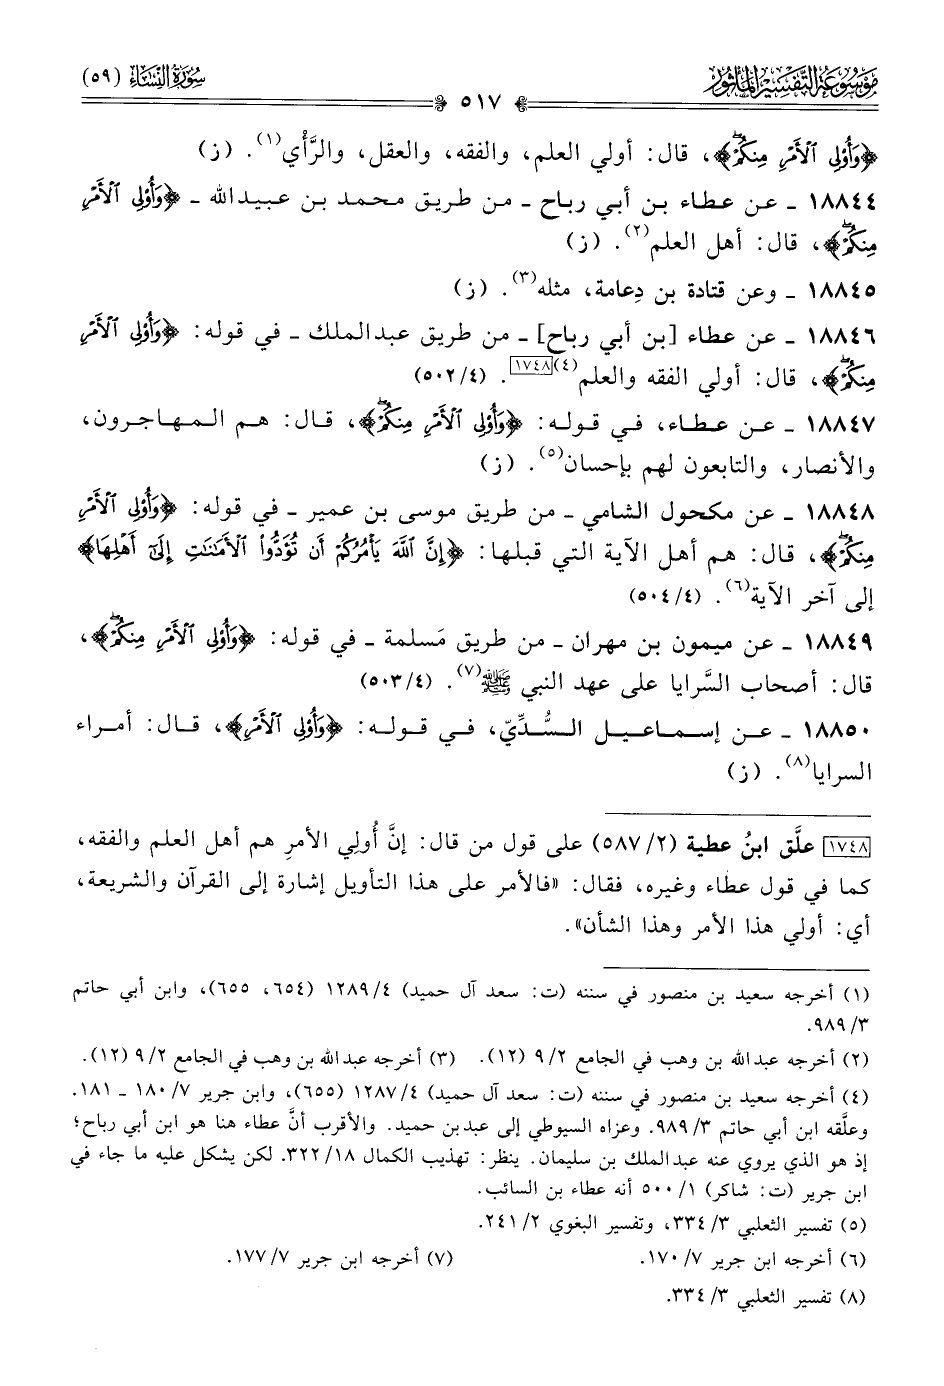 مَوْسُوعَة التَّفْسِير المَأْثُور
٥١٧
سُورَةُ النِّسَاء (٥٩)
﴿وَأُوْلِي ٱلۡأَمۡرِ مِنكُمۡۖ﴾، قال: أولي العلم، والفقه، والعقل، والرَّأْي(١). (ز)
١٨٨٤٤ ـ عن عطاء بن أبي رباح ـ من طريق محمد بن عبيدالله ـ ﴿وَأُوْلِي ٱلۡأَمۡرِ
مِنكُمۡۖ﴾، قال: أهل العلم(٢). (ز)
١٨٨٤٥ ـ وعن قتادة بن دِعامة، مثله(٣). (ز)
١٨٨٤٦ ـ عن عطاء [بن أبي رباح] ـ من طريق عبدالملك ـ في قوله: ﴿وَأُوْلِي ٱلۡأَمۡرِ
مِنكُمۡۖ﴾، قال: أولي الفقه والعلم(٤)[١٧٤٨]. (٤/ ٥٠٢)
١٨٨٤٧ ـ عن عطاء، في قوله: ﴿وَأُوْلِي ٱلۡأَمۡرِ مِنكُمۡۖ﴾، قال: هم المهاجرون،
والأنصار، والتابعون لهم بإحسان(٥). (ز)
١٨٨٤٨ ـ عن مكحول الشامي ـ من طريق موسى بن عمير ـ في قوله: ﴿وَأُوْلِي ٱلۡأَمۡرِ
مِنكُمۡۖ﴾، قال: هم أهل الآية التي قبلها: ﴿إِنَّ ٱللَّهَ يَأۡمُرُكُمۡ أَن تُؤَدُّواْ ٱلۡأَمَٰنَٰتِ إِلَىٰٓ أَهۡلِهَا﴾
إلى آخر الآية(٦). (٤/ ٥٠٤)
١٨٨٤٩ ـ عن ميمون بن مهران ـ من طريق مَسلمة ـ في قوله: ﴿وَأُوْلِي ٱلۡأَمۡرِ مِنكُمۡۖ﴾،
قال: أصحاب السَّرايا على عهد النبي ﷺ(٧). (٤/ ٥٠٣)
١٨٨٥٠ ـ عن إسماعيل السُّدِّيّ، في قوله: ﴿وَأُوْلِي ٱلۡأَمۡرِ﴾، قال: أمراء
السرايا(٨). (ز)
[١٧٤٨] علَّق ابنُ عطية (٢/ ٥٨٧) على قول من قال: إنَّ أُولِي الأمرِ هم أهل العلم والفقه،
كما في قول عطاء وغيره، فقال: «فالأمر على هذا التأويل إشارة إلى القرآن والشريعة،
أي: أولي هذا الأمر وهذا الشأن».
(١) أخرجه سعيد بن منصور في سننه (ت: سعد آل حميد) ٤/ ١٢٨٩ (٦٥٤، ٦٥٥)، وابن أبي حاتم
٣/ ٩٨٩.
(٢) أخرجه عبدالله بن وهب في الجامع ٢/ ٩ (١٢). (٣) أخرجه عبدالله بن وهب في الجامع ٢/ ٩ (١٢).
(٤) أخرجه سعيد بن منصور في سننه (ت: سعد آل حميد) ٤/ ١٢٨٧ (٦٥٥)، وابن جرير ٧/ ١٨٠ ـ ١٨١.
وعلَّقه ابن أبي حاتم ٣/ ٩٨٩. وعزاه السيوطي إلى عبد بن حميد. والأقرب أنَّ عطاء هنا هو ابن أبي رباح؛
إذ هو الذي يروي عنه عبدالملك بن سليمان. ينظر: تهذيب الكمال ١٨/ ٣٢٢. لكن يشكل عليه ما جاء في
ابن جرير (ت: شاكر) ١/ ٥٠٠ أنه عطاء بن السائب.
(٥) تفسير الثعلبي ٣/ ٣٣٤، وتفسير البغوي ٢/ ٢٤١.
(٦) أخرجه ابن جرير ٧/ ١٧٠. (٧) أخرجه ابن جرير ٧/ ١٧٧.
(٨) تفسير الثعلبي ٣/ ٣٣٤.